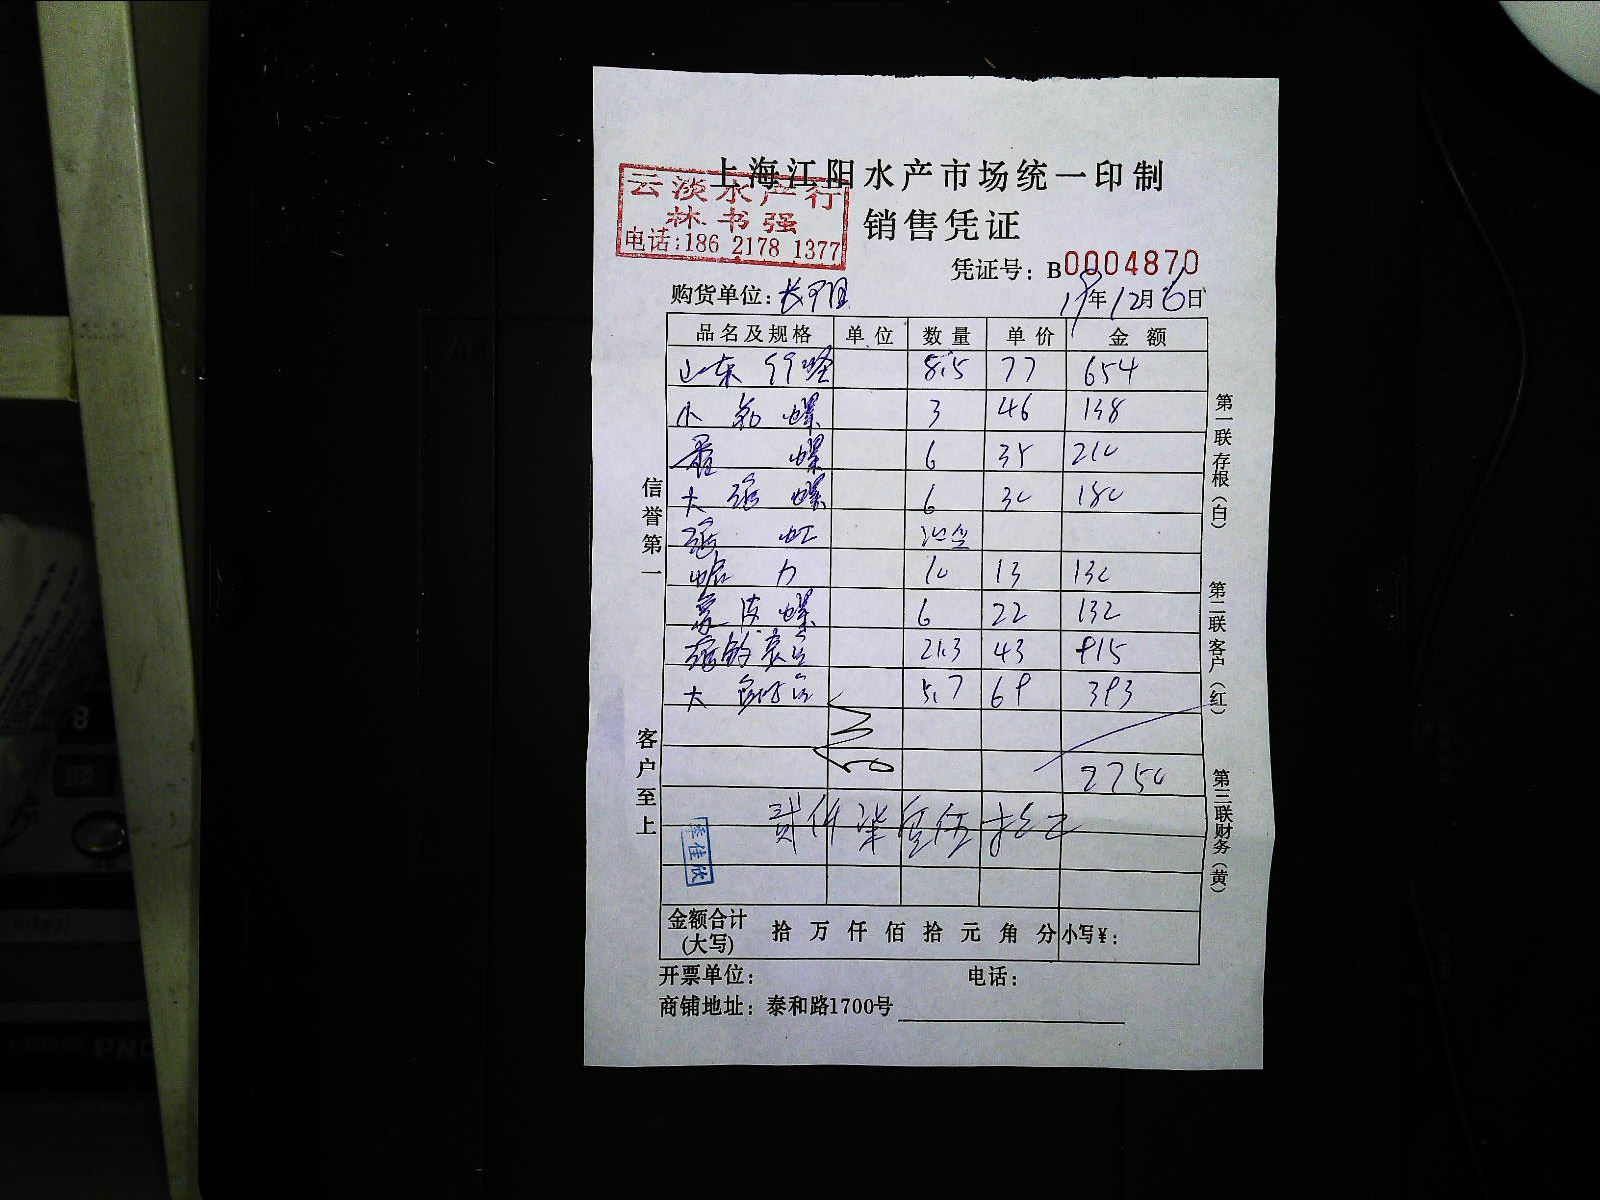 上海江阳水产市场统一印制
云淡水产行
林书强
电话:186 2178 1377
销售凭证
凭证号：B0004870
购货单位：长
19年12月6日
品名及规格 单位 数量 单价 金额
山东 8.5 77 654
小 螺 3 46 138
螺 6 35 210
大 螺 6 30 180
10 13 130
皮螺 6 22 132
21.3 43 915
大 5.7 69 393
2750
贰仟柒佰伍拾元
季佳欣
金额合计(大写) 拾 万 仟 佰 拾 元 角 分 小写¥：
开票单位： 电话：
商铺地址：泰和路1700号
信誉第一
客户至上
第一联存根（白）
第二联客户（红）
第三联财务（黄）